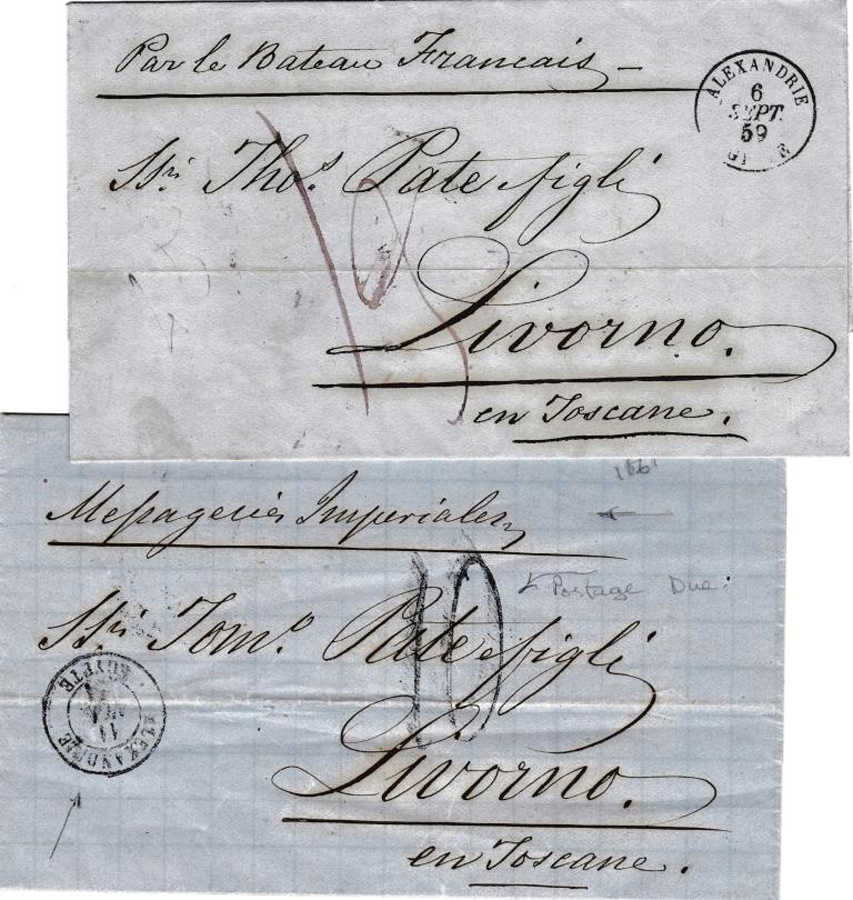 Par le Bateau Francais
ALEXANDRIE
6
SEPT.
59
Ssri Thos. Pate figli
Livorno.
en Toscane.
1861
Messageries Imperiales
10
Postage Due.
Ssri Tomo. Pate figli
ALEXANDRIE
EGYPTE
11
Livorno.
en Toscane.